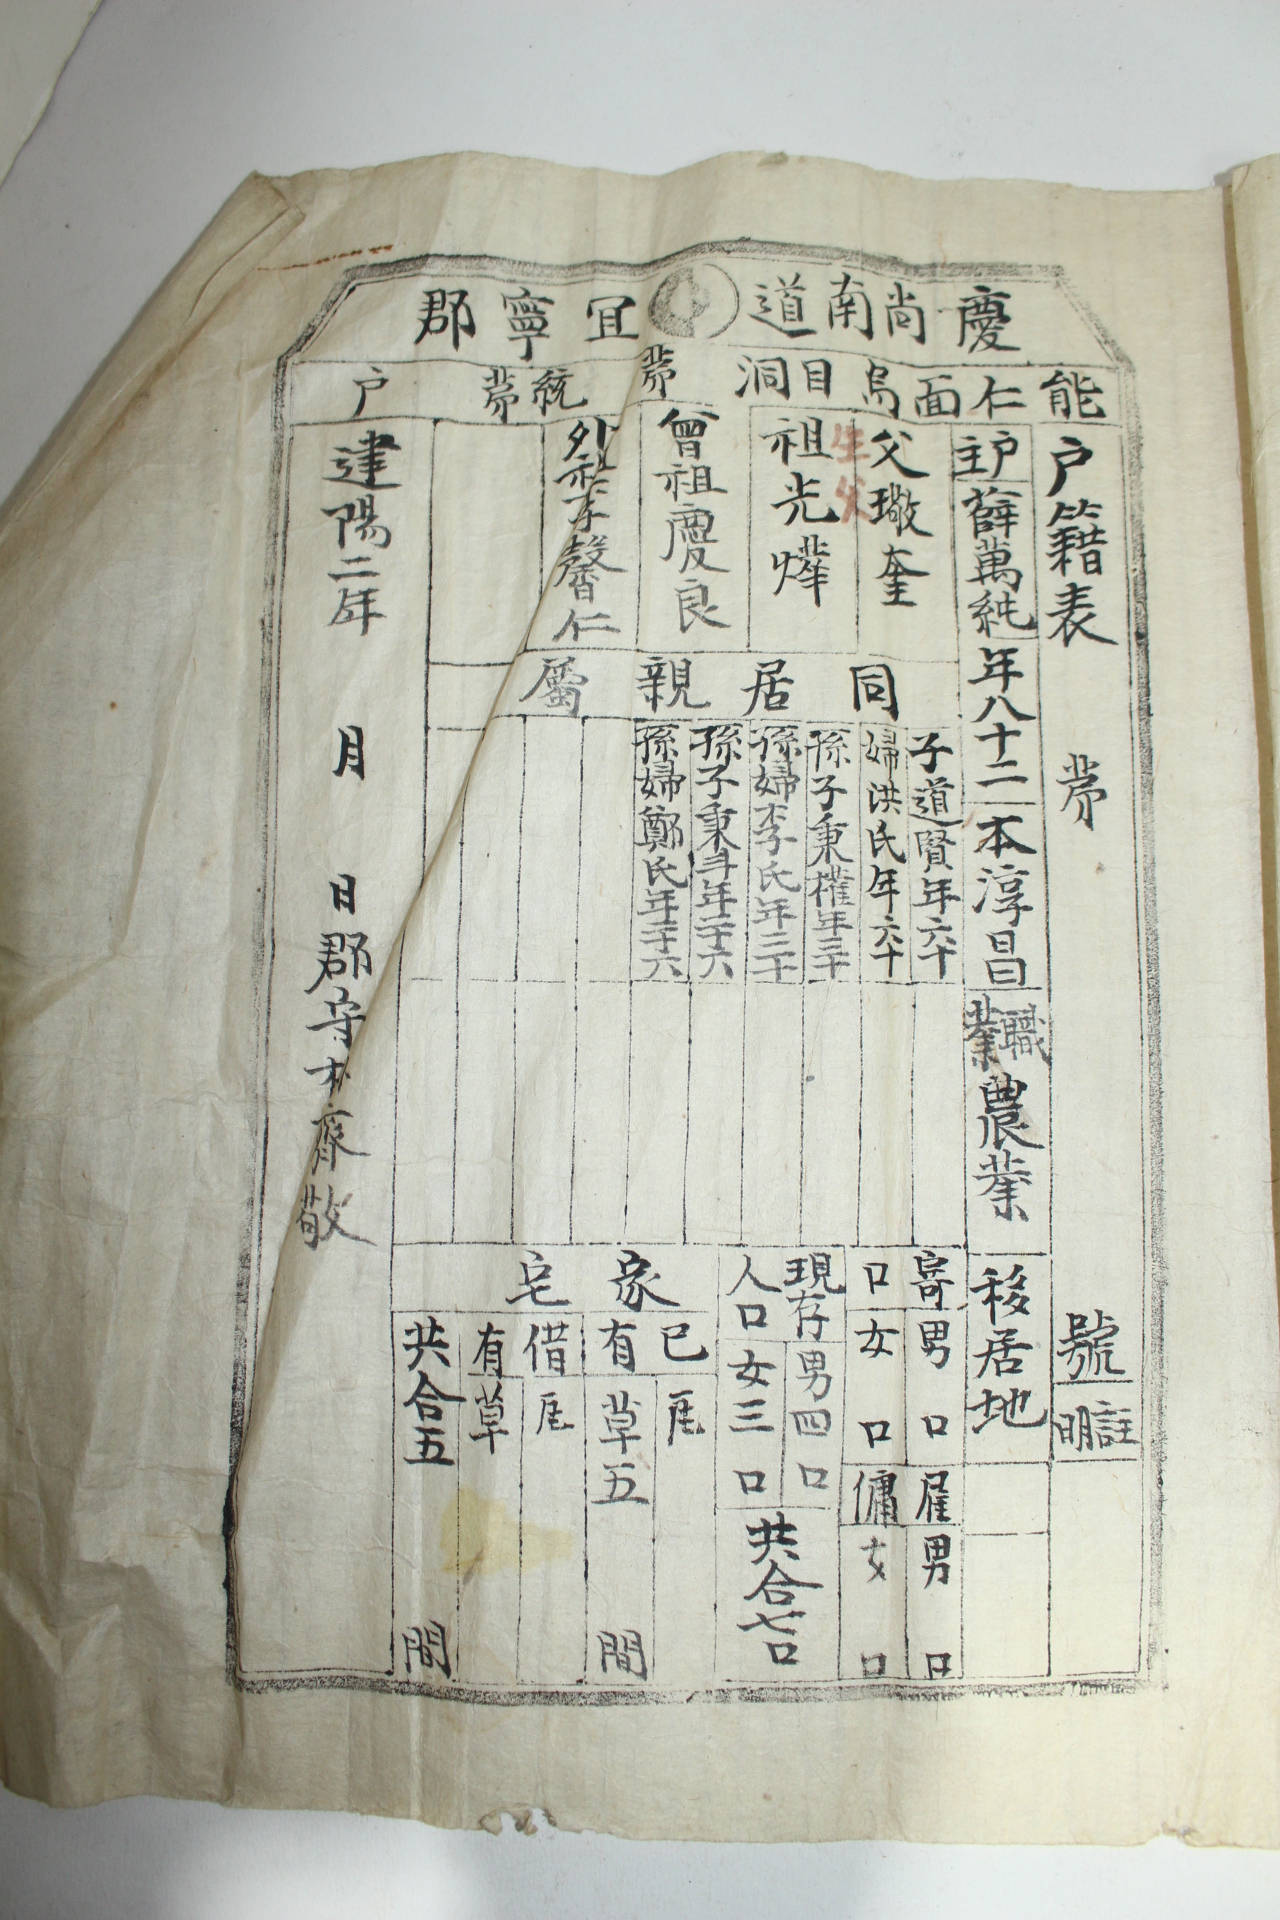 慶尚南道 宜寧郡
能仁面烏目洞 第 統第 戶
戶籍表 第 號
註明
戶主
薛萬純
年八十二
本淳昌
職業
農業
移居地
父璥奎
生父
祖光燁
曾祖慶良
外祖李馨仁
同居親屬
子道賢年六十
婦洪氏年六十
孫子秉權年三十
孫婦李氏年三十
孫子秉斗年二十六
孫婦鄭氏年二十六
寄口
男 口
女 口
雇傭
男 口
女 口
現存人口
男四口
女三口
共合七口
家宅
已有
瓦
草五 間
借有
瓦
草
共合五 間
建陽二年 月 日郡守朴齊敬